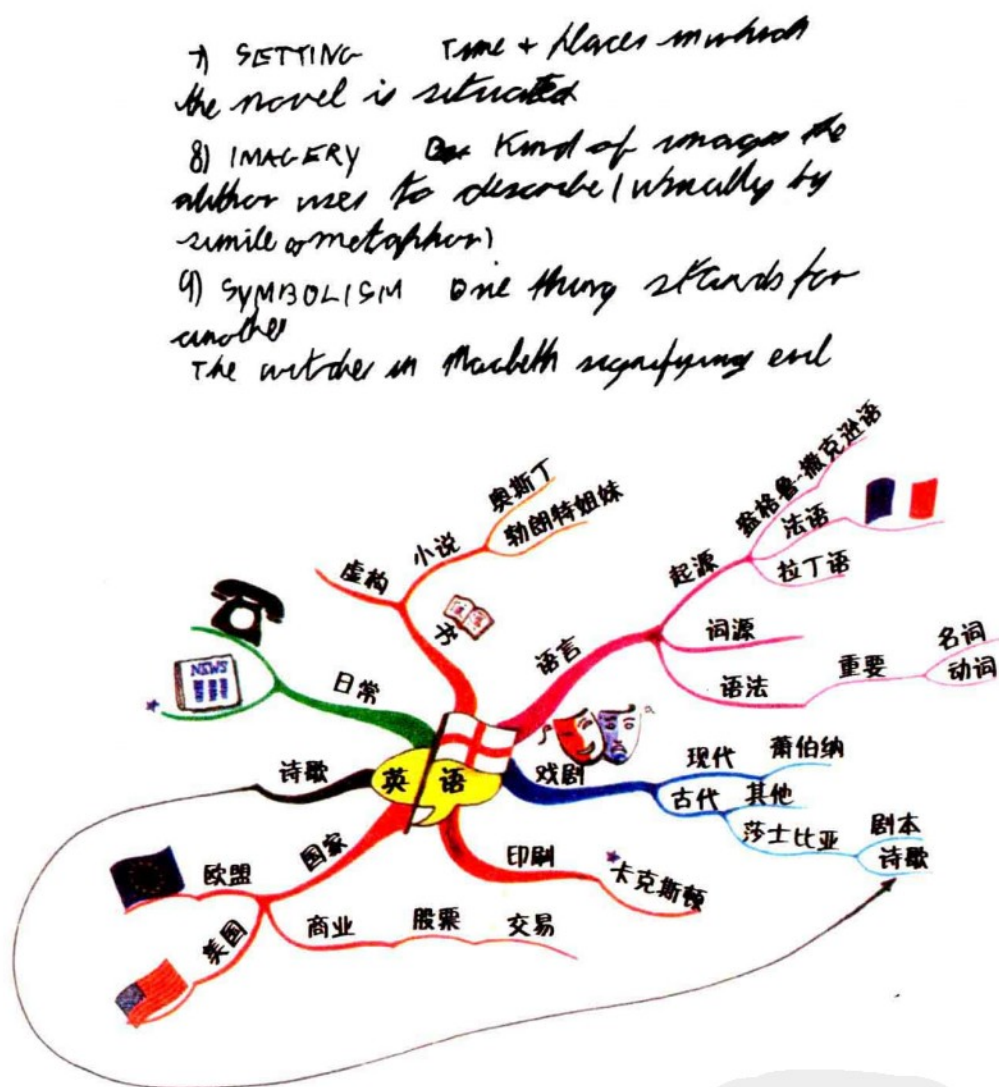 7) SETTING Time + places in which
the novel is situated
8) IMAGERY Kind of images the
author uses to describe (usually by
simile or metaphor)
9) SYMBOLISM One thing stands for
another
The witches in Macbeth signifying evil
英语
语言
起源
盎格鲁-撒克逊语
法语
拉丁语
词源
语法
重要
名词
动词
戏剧
现代
萧伯纳
古代
其他
莎士比亚
剧本
诗歌
印刷
卡克斯顿
国家
欧盟
美国
商业
股票
交易
诗歌
日常
NEWS
书
虚构
小说
奥斯丁
勃朗特姐妹